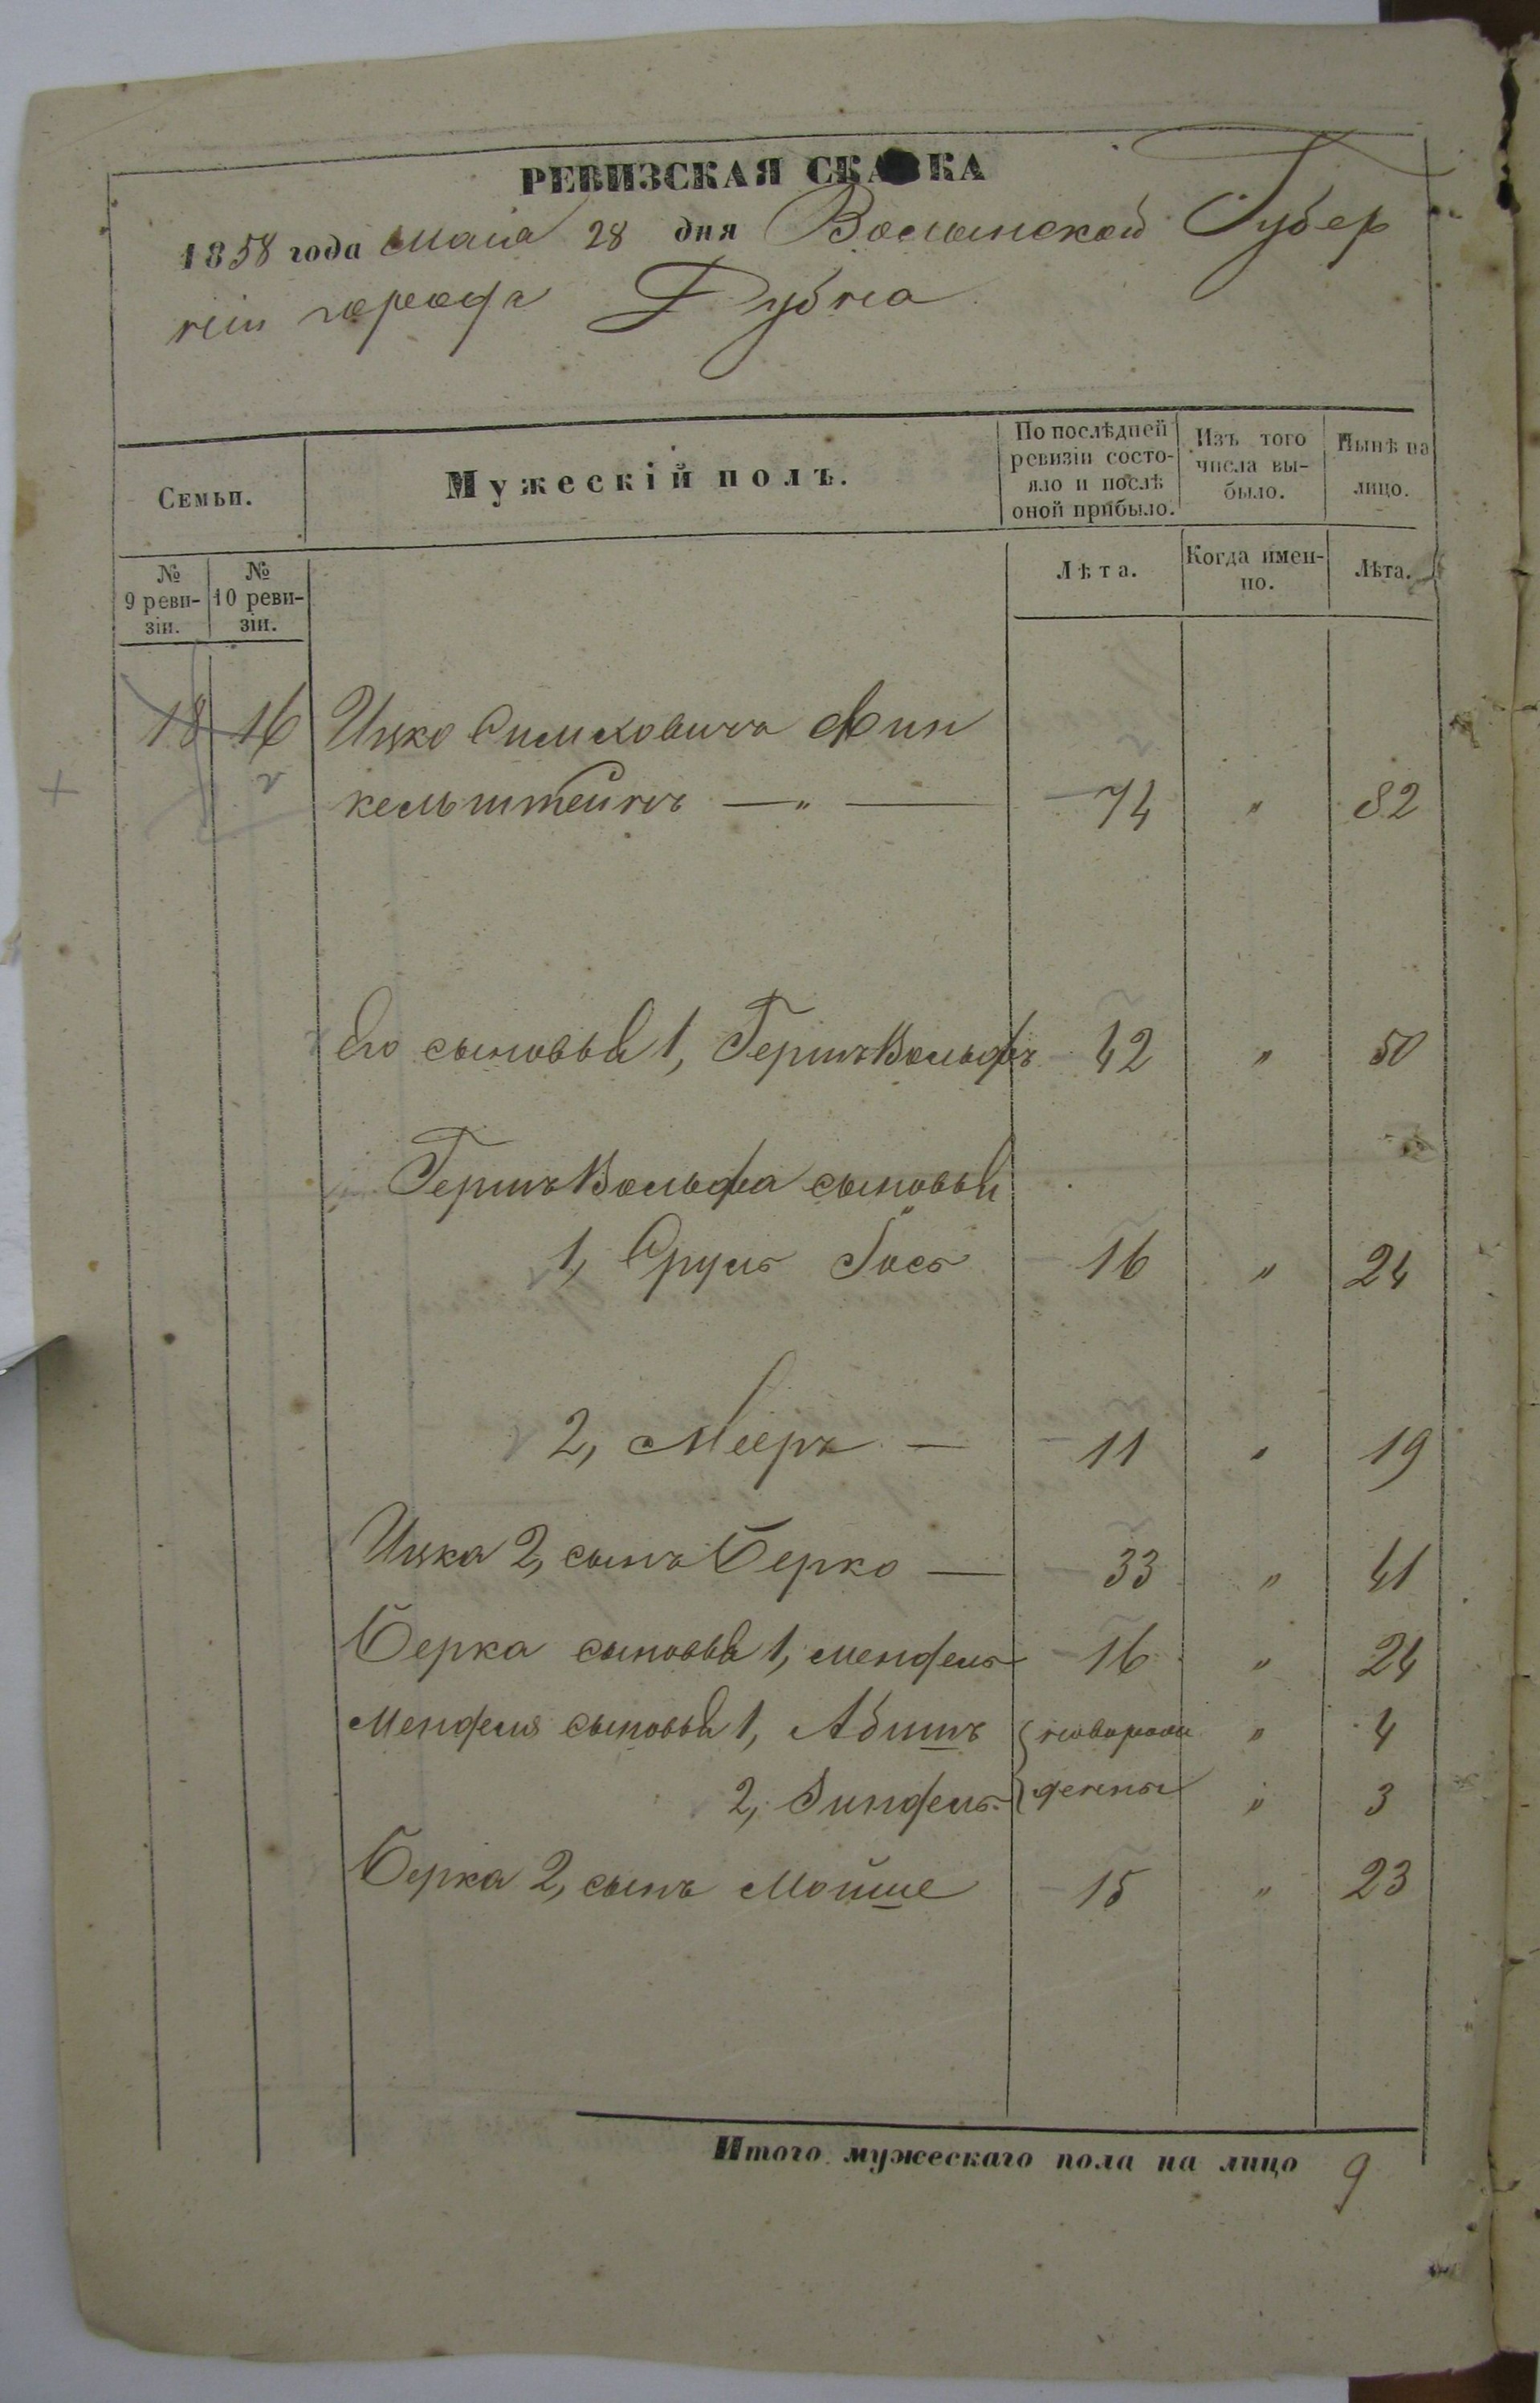 РЕВИЗСКАЯ СКАЗКА
1858 года Маія 28 дня Волынской Губер
ніи города Дубна
Семьи.
Мужескій полъ.
По послѣдней ревизіи состо-
яло и послѣ оной прибыло.
Изъ того числа вы-
было.
Нынѣ на лицо.
№ 9 реви-
зіи.
№ 10 реви-
зіи.
Лѣта.
Когда имен-
но.
Лѣта.
18 16 Ицко Симховичъ Фин
кельштейнъ — „ — 74 „ 82
Его сыновья 1, ГершъВольфъ 42 „ 50
ГершъВольфа сыновья
1, Сруль Іось 16 „ 24
2, Мееръ — 11 „ 19
Ицка 2, сынъ Берко — 33 „ 41
Берка сыновья 1, Мендель 16 „ 24
Менделя сыновья 1, Абишъ новорож „ 4
2, Зиндель денны „ 3
Берка 2, сынъ Мойше 15 „ 23
Итого мужескаго пола на лицо 9